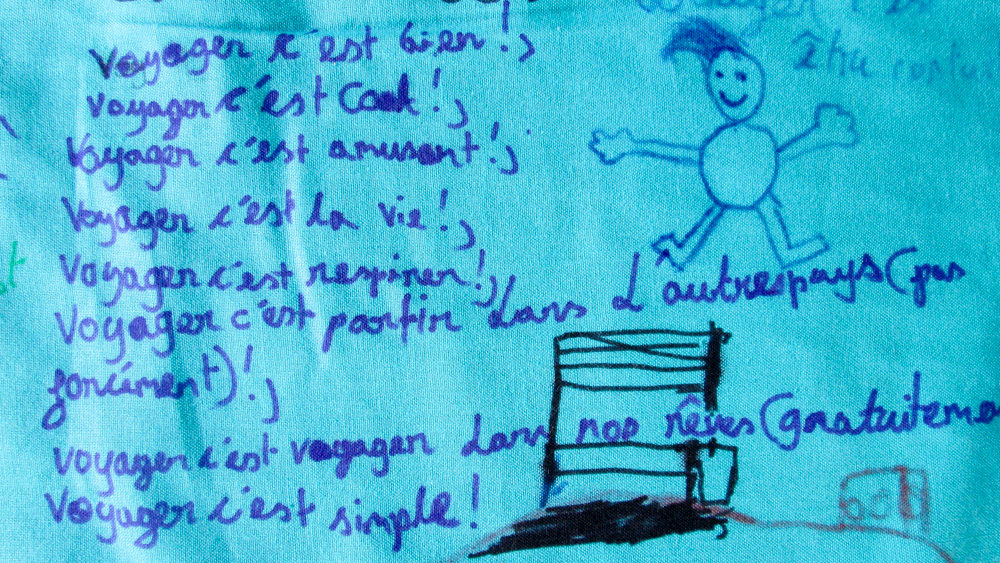 Voyager c'est bien !;
Voyager c'est Cool !;
Voyager c'est amusant !;
Voyager c'est la vie !;
Voyager c'est respirer !;
Voyager c'est partir dans d'autres pays (pas
forcément) !;
Voyager c'est voyager dans nos rêves (gratuiteme
Voyager c'est simple !